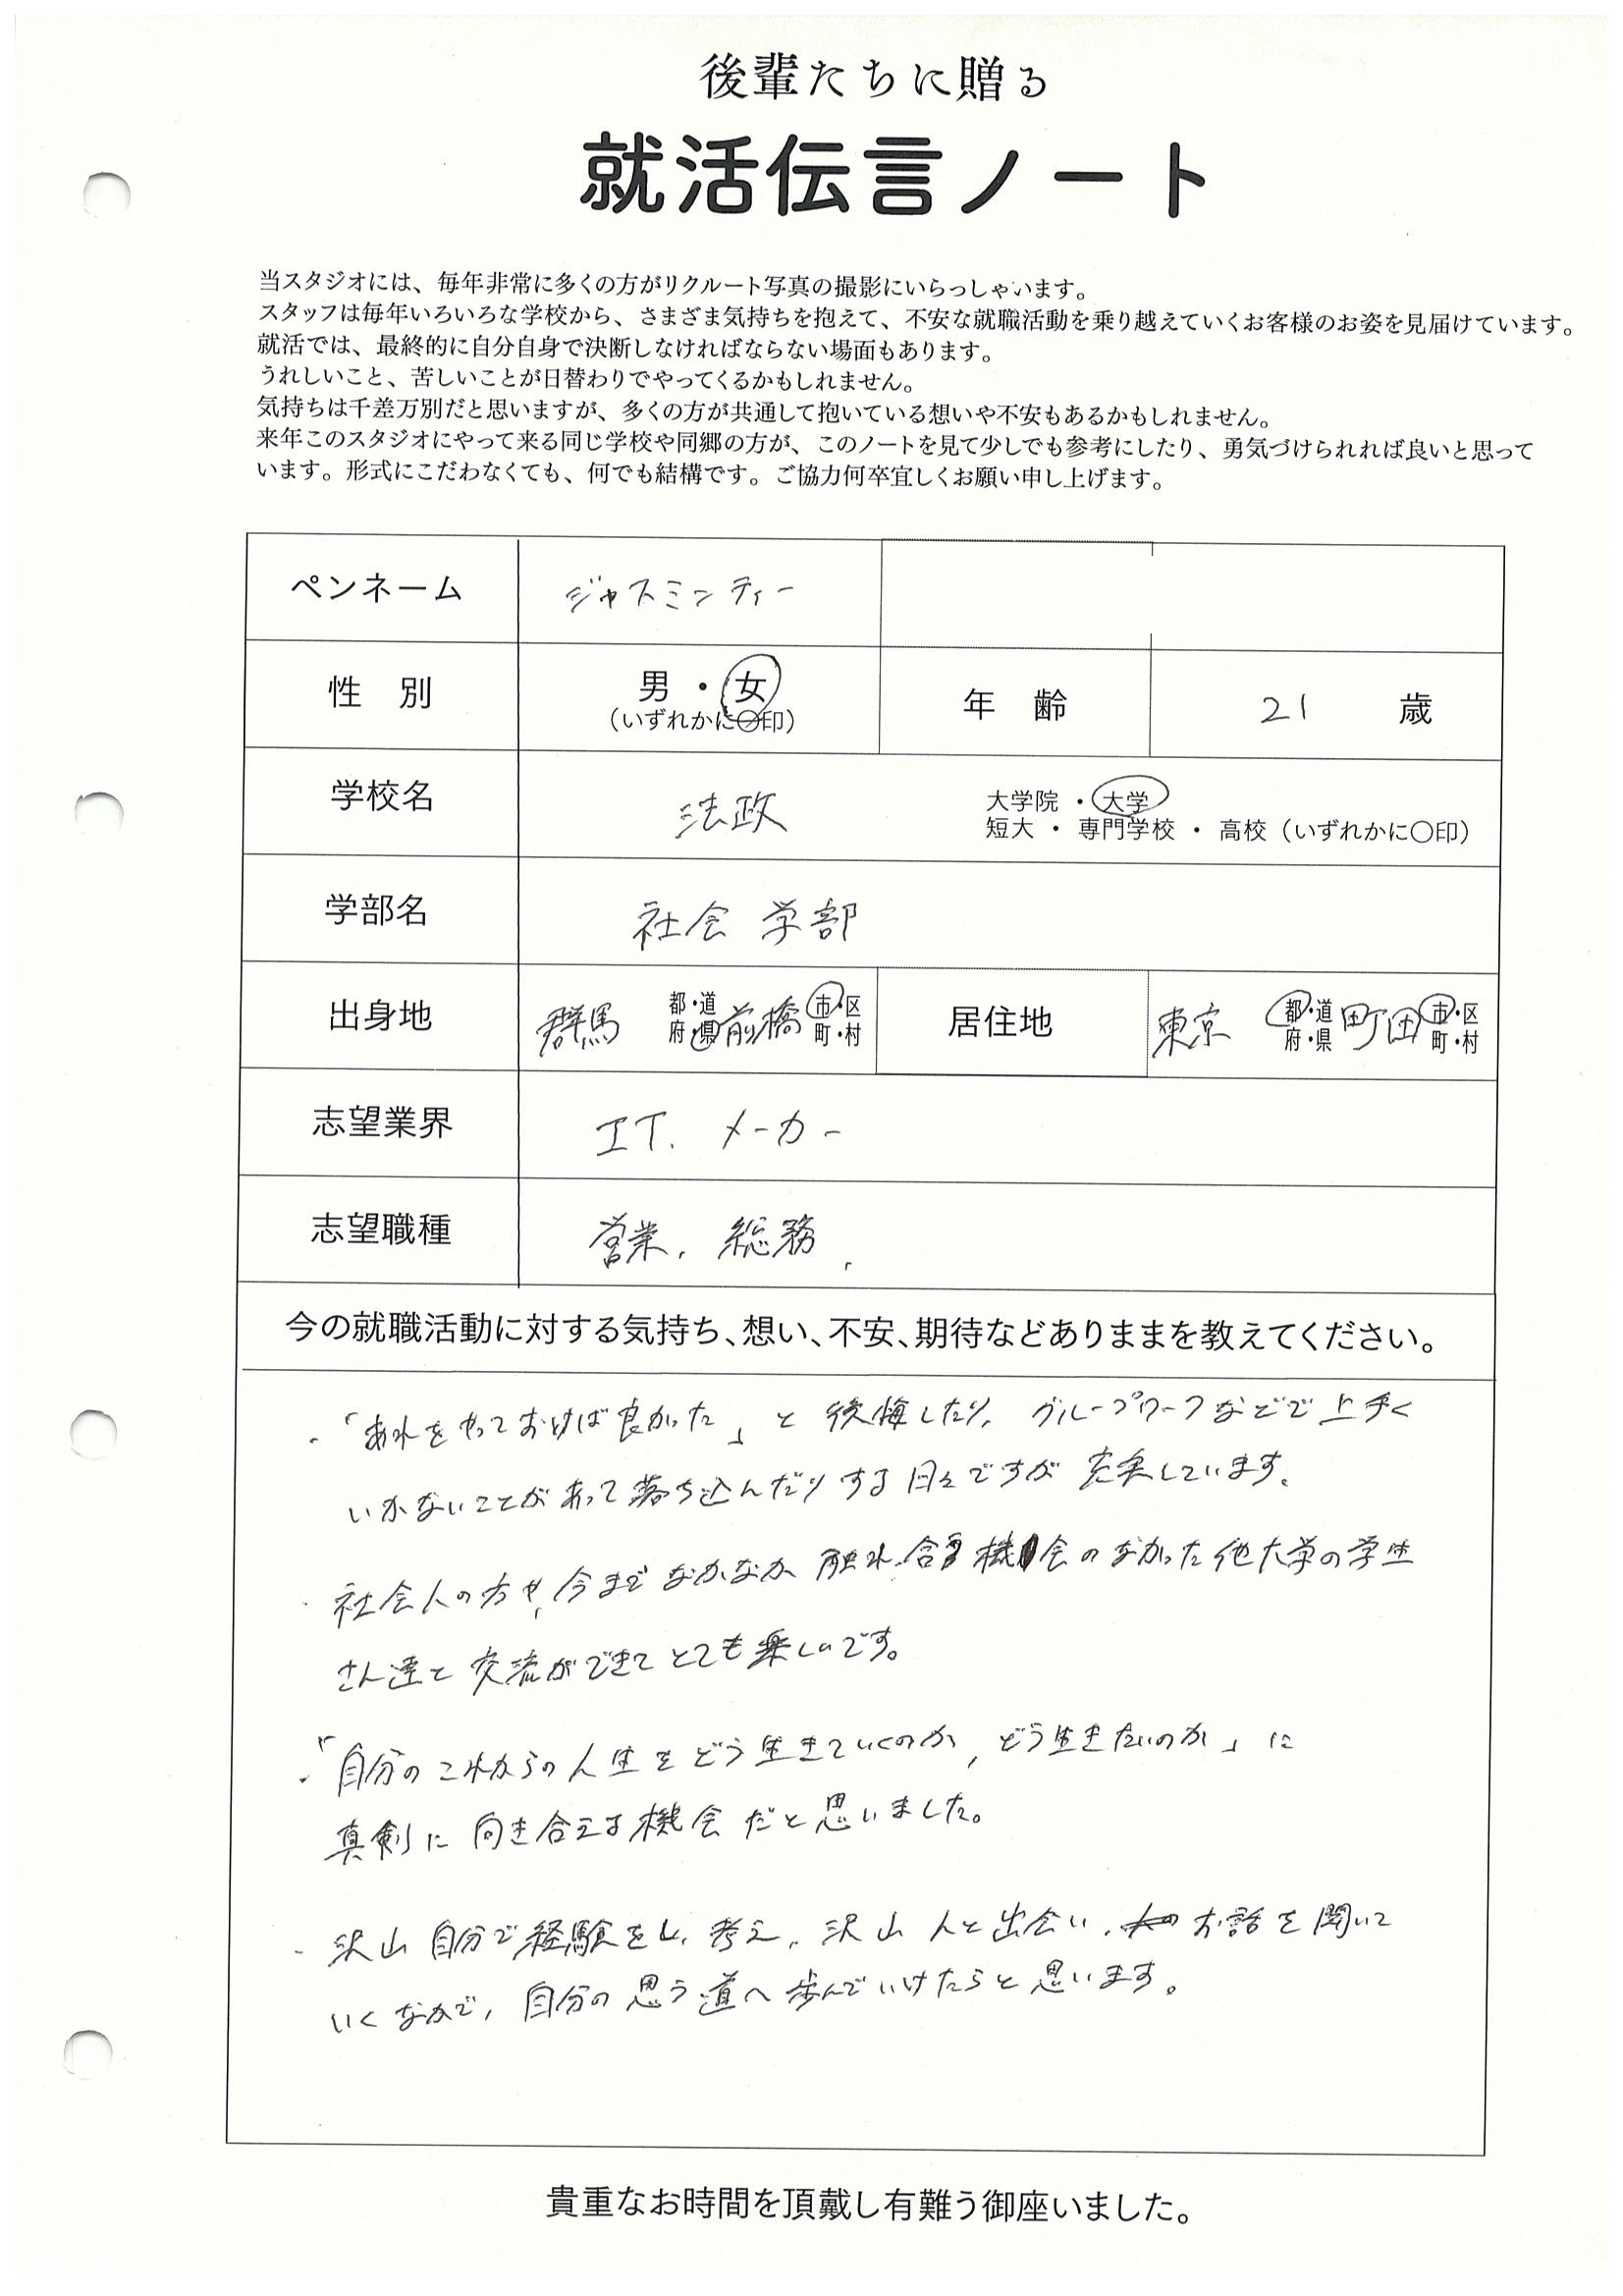 後輩たちに贈る
就活伝言ノート
当スタジオには、毎年非常に多くの方がリクルート写真の撮影にいらっしゃいます。
スタッフは毎年いろいろな学校から、さまざま気持ちを抱えて、不安な就職活動を乗り越えていくお客様のお姿を見届けています。
就活では、最終的に自分自身で決断しなければならない場面もあります。
うれしいこと、苦しいことが日替わりでやってくるかもしれません。
気持ちは千差万別だと思いますが、多くの方が共通して抱いている想いや不安もあるかもしれません。
来年このスタジオにやって来る同じ学校や同郷の方が、このノートを見て少しでも参考にしたり、勇気づけられれば良いと思って
います。形式にこだわなくても、何でも結構です。ご協力何卒宜しくお願い申し上げます。
ペンネーム ジャスミンティー
性 別 男・女 (いずれかに○印) 年 齢 21 歳
学校名 法政 大学院・大学
短大・専門学校・高校(いずれかに○印)
学部名 社会学部
出身地 群馬 都・道 府・県 前橋 市・区 町・村 居住地 東京 都・道 府・県 町田 市・区 町・村
志望業界 IT. メーカー
志望職種 営業, 総務,
今の就職活動に対する気持ち、想い、不安、期待などありままを教えてください。
・「あれをやっておけば良かった」と後悔したり、グループワークなどで上手く
いかないことがあって落ち込んだりする日々ですが充実しています。
・社会人の方や、今までなかなか触れ合う機会のなかった他大学の学生
さん達と交流ができてとても楽しいです。
・「自分のこれからの人生をどう生きていくのか、どう生きたいのか」に
真剣に向き合える機会だと思いました。
・沢山自分で経験をし、考え、沢山人と出会い、お話を聞いて
いくなかで、自分の思う道へ歩んでいけたらと思います。
貴重なお時間を頂戴し有難う御座いました。